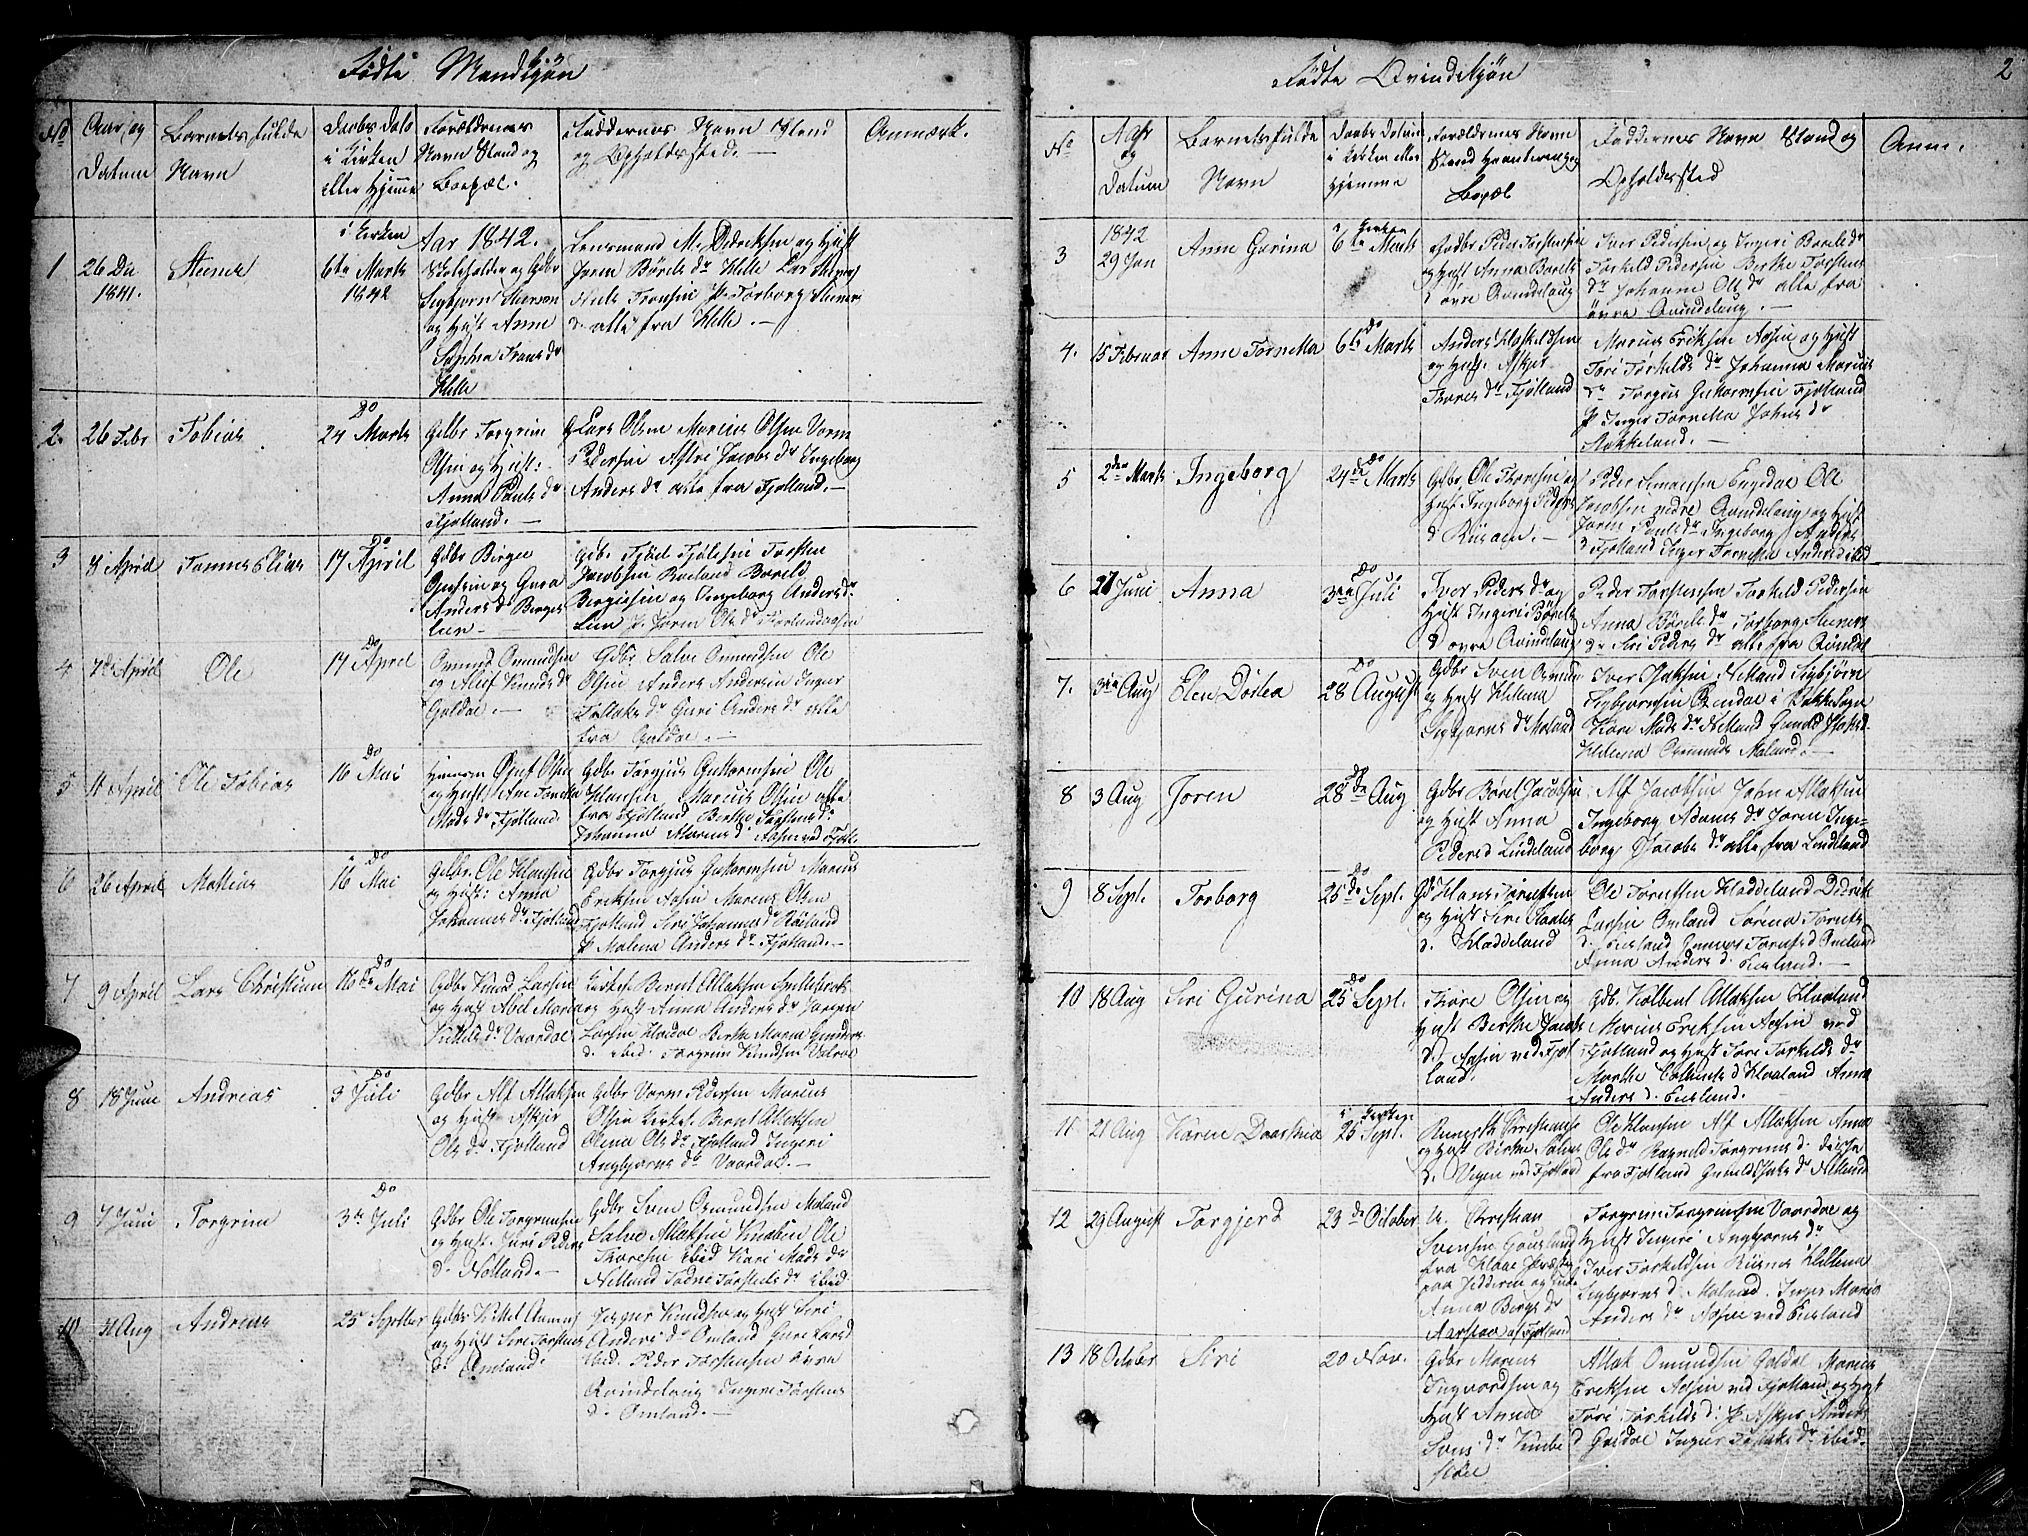 Fødte Mandkjøn
No
Aar og
Datum
Barnets fulde
Navn
Daabs Dato
i Kirken
eller Hjemme
Forældrenes
Navn Stand og
Bopæl.
Faddernes Navn Stand
og Opholdssted.—
Anmærk.
1
26 De
1841.
Steener
i Kirken
6te Marts
1842
Aar 1842.
Skoleholder og Gdbr
Sigbjørn Steenson
og Hust Anne
Sophia Frans dr
Helle
Lensmand M. Didriksen og Hust
Joren Børels dr Helle
Niels Fransen P. Torborg Steeners
d. alle fra Helle.—
2.
26 Febr
Tobias
Do
24 Marts
Gdbr Torgrim
Olsen og Hust:
Anna Pauls dr
Fjotland.—
Lars Olsen Marius Olsen Vorm
Pedersen Astri Jacobs dr Ingeborg
Anders dr alle fra Fjotland.—
3
8 April
Tønnes Elias
Do
17 April
Gdbr Birger
og Gura
Anders d Berges
Lien—
Gdb. Torsten
Jacobsen Røeland Boreld
Bergesen og Ingeborg Anders dr
Lien P. Joren Ols dr
4
7de April
Ole
Do
17 April
Omund Omundsen
og Knuds dr
Galdal.—
Gdbr Salve Omundsen Ole
Olsen Anders Andersen Inger
Tollaks dr Guri Anders dr alle
fra Galdal.—
5
11 April
Ole Tobias
Do
16 Mai
Olsen
og Hust Ane Tonetta
Mads dr Fjotland
Gdbr Torgjus Guttormsen Ole
Hansen Marcus Olsen alle
fra Fjotland Berthe Torstens dr
Johanna Marius d. Aasen ved Fjotl.
6
26 April
Mathias
Do
16 Mai
Gdbr. Ole Hansen
og Hust: Anna
Johannes dr Fjotland
Gdbr Torgjus Guttormsen Marius
Eriksen Aasen Marcus Olsen
Fjotland Siri Johannes dr Røiland
P Malena Anders dr Fjotland.—
7
9 April
Lars Christian
Do
16de Mai
Gdbr Knud Larsen
og Hust Abel Maria
Kittels dr Vaardal
Kirkes. Bernt Allaksen
og Hust Anna Anders dr Jørgen
Larsen Hladal Berthe Maria Gunders
d. ibid. Torgrim Knudsen
8
18 Juni
Andreas
Do
3 Juli
Gdbr Alf Allaksen
og Hust Askjer
Ols dr Fjotland
Gdbr Vorm Pedersen Marcus
Olsen Kirkes. Bernt Allaksen
Olena Ols dr Fjotland Ingeri
Angbjørns dr Vaardal.—
9
7 Juni
Torgrim
Do
3de Juli
Gdbr Ole Torgrimsen
og Hust. Siri Peders
d. Netland.—
Gdbr Sven Osmundsen Moland
Salve Allaksen Knaben Ole
Thoresen ibid Kari Mads dr
Netland Torstens dr ibid
10
4 Aug
Andreas
25 Septbr
Gdbr Kittel
og Hust Siri Torstens
d. Omland.
Jesper Knudsen og Hust Siri
Anders dr Omland Guri Lars d
ibid. Peder Torstensen øvre
Qvindelaug Ingeri Torstens
d. Omland.—
Fødte Qvindekjøn
2
No
Aar
og
Datum
Barnets fulde
Navn
Daabs Datum
i Kirken eller
Hjemme
Forældrenes Navn
Stand Haantering og
Bopæl
Faddernes Navn Stand og
Opholdssted
Anm.
3
1842
29 Jan
Anne Gurina
i Kirken
6te Marts
Gdbr Peder Torstensen
og Hust Anna Borels
d øvre Qvindelaug
Iver Pedersen og Ingeri Borels dr
Torkild Pedersen Berthe Torstens
dr Johanne Ols dr alle fra
øvre Qvindelaug.—
4.
15 Februar
Anne Tornetta
Do
6te Marts
Anders Askildsen
og Hust. Askjer
Thores dr Fjotland
Marius Eriksen Aasen og Hust
Tori Torkilds dr Johanna Marius
dr Torgjus Guttormsen Fjotland
P Inger Tornetta Johns dr
Stakkeland.—
5
2den Marts
Ingeborg
Do
24de Marts
Gdbr. Ole Thoresen og
Hust Ingeborg Peders
d Risnes.—
Peder Simonsen Engedal Ole
Jacobsen nedre Qvindelaug og Hust
Joren Pauls dr Ingeborg Anders
d Fjotland Inger Tornetta Anders d ibid
6
21 Juni
Anna
Do
3die Juli
Iver Peders dr og
Hust Ingeri Børels
d øvre Qvindelaug
Peder Torstensen Torkild Pedersen
Anna Børels dr Torborg Steeners
dr Siri Peders dr alle fra Qvindal
7.
3die Aug
Elen Dortea
Do
28 August
Gdbr Sven Osmunsen
og Hust Helena
Sigbjørns dr Moland
Iver Netland Sigbjørn
Sigbjørnsen i Bakke Sogn
Kari Mads dr Netland
Helena Osmunds Moland.—
8
3 Aug
Joren
Do
28de Aug
Gdbr Børel Jacobsen
og Hust Anna
Peders d Lindeland
Alf Jacobsen John Allaksen
Ingeborg Adams dr Joren Inge-
borg Jacobs dr alle fra Lindeland
9
8 Sept.
Torborg
Do
25de Sept.
Hans Tørrissen
og Hust Siri
d. Haddeland
Ole Tørrissen Haddeland Didrik
Larsen Omland Sørena Tørris
d. Eiesland Omland
Anna Anders d. Eiesland.—
10
18 Aug
Siri Gurina
Do
25 Sept.
Thore Olsen og
Hust Berthe Jacobs
d. Aasen ved Fjot
land.
Gdb. Kolbent Allaksen Haaland
Marius Eriksen Aasen ved
Fjotland og Hust Tori Torkilds dr
Marthe d Haaland Anna
Anders d. Eiesland.
11
21 Aug
Karen Daarthea
i Kirken
25 Sept.
Christians
og Hust Birthe Salves
d. ved Fjotland
Ole Hansen Alf Allaksen Anna
Ols dr Ragnild Torgrims d. disse
fra Fjotland dr Netland
12
29 August
Torgjerd
23de October
U. Christian
Svensen
fra
paa Jedderen og
Anna Bergs dr
af Fjotland
Torgrim Torgrimsen Vaardal og
Hust Ingeri Angbjørns dr
Iver Torkildsen Risnes Helena
Sigbjørns d. Moland. Inger Maria
Anders dr Aasen ved Eiesland
13
18 October
Siri
20 Nov.
Gdbr Marius
Ingvardsen og
Hust Anna
Svens dr Knabe
støel
Allak Omundsen Galdal Marius
Eriksen Aasen ved Fjotland og Hust
Tori Torkilds d. P Askjer Anders
d Galdal Inger Tollaks dr ibid.